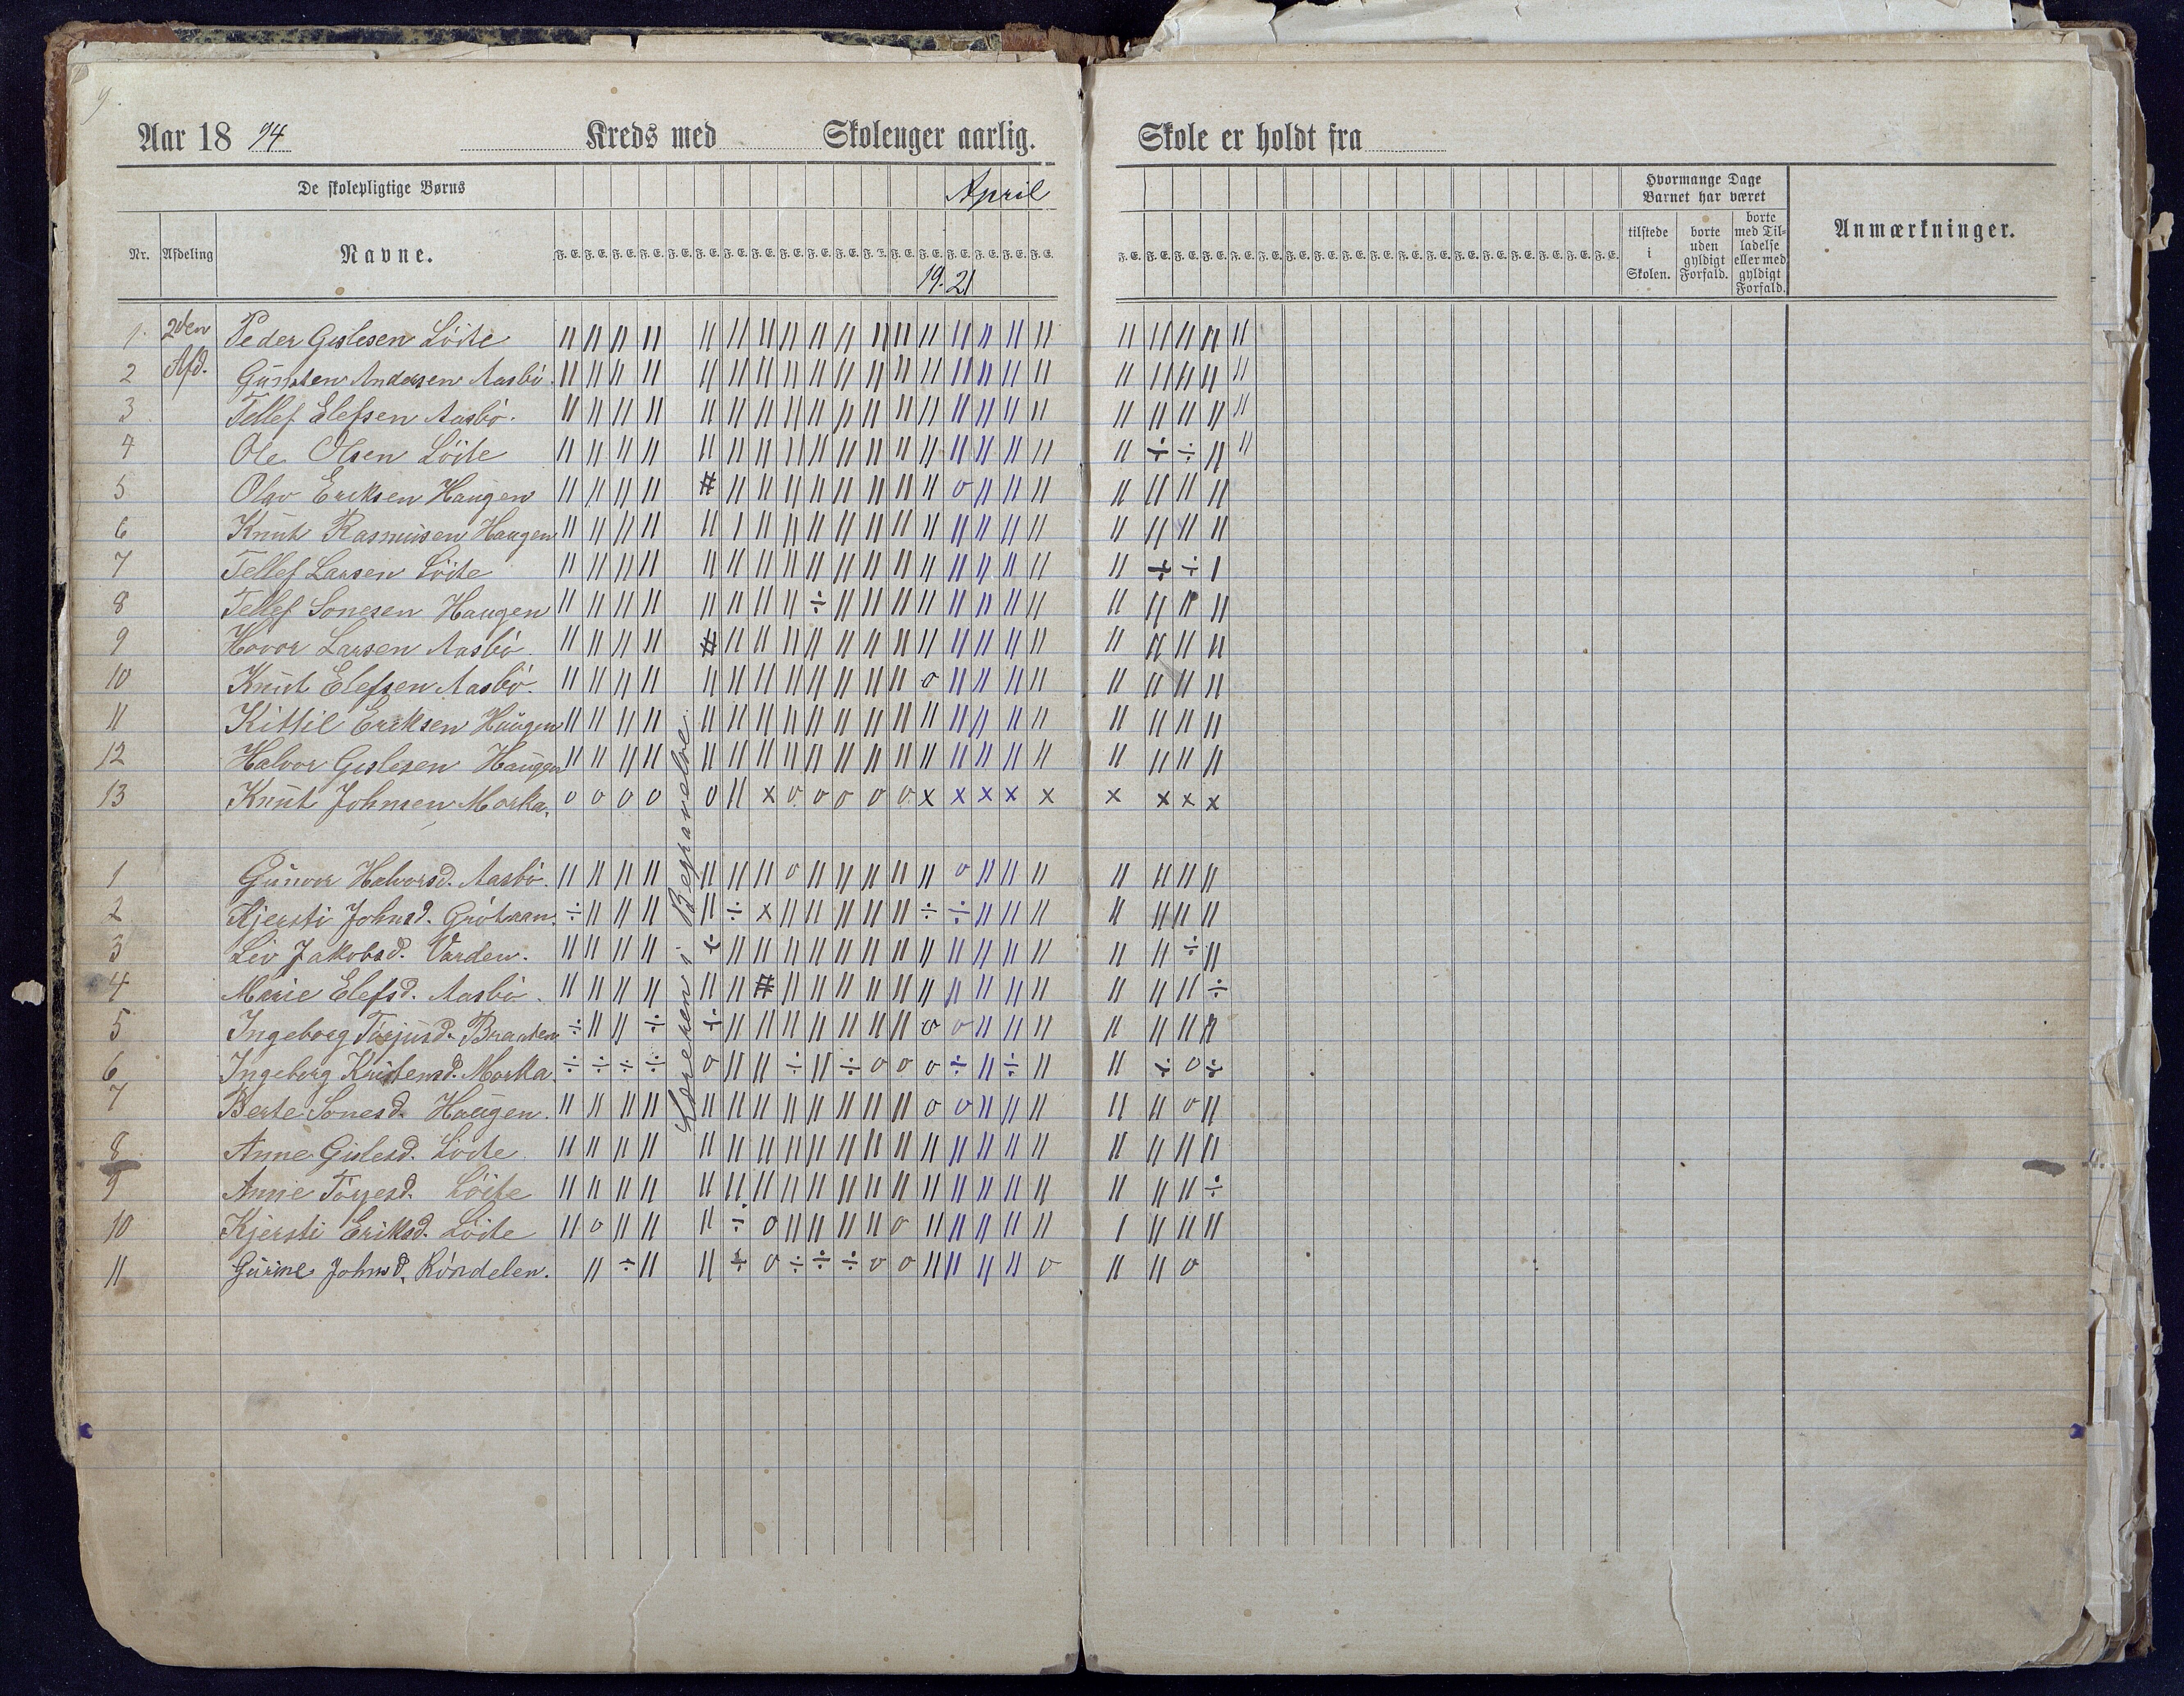 9.
Aar 18 94 Kreds med Skoleuger aarlig. Skole er holdt fra
De skolepligtige Børns April Hvormange Dage Barnet har været
Nr. Afdeling Navne. F. E. F. E. F. E. F. E. F. E. F. E. F. E. F. E. F. E. F. E. F. E. F. E. F. E. F. E. F. E. F. E. F. E. F. E. tilstede i Skolen. borte uden gyldigt Forfald. borte med Tilladelse eller med gyldigt Forfald. Anmærkninger.
19. 21
1. 2den Peder Gislesen Löite
2 Afd. Gunsten Andersen Aasbö.
3 Tellef Elefsen Aasbö.
4 Ole Olsen Löite
5 Olav Eriksen Haugen
6 Knut Rasmusen Haugen
7 Tellef Larsen Löite
8 Tellef Sonesen Haugen
9 Hovor Larsen Aasbö
10 Knut Elefsen Aasbö.
11 Kittil Eriksen Haugen
12 Halvor Gislesen Haugen
13 Knut Johnsen Morka. o o o o o || x o o o o o x x x x x x x x x
1 Gunvor Halvorsd. Aasbö.
2 Kjersti Johnsd. Grötaan.
3 Liv Jakobsd. Varden.
4 Marie Elefsd. Aasbö.
5 Ingeborg Torjusd. Braaten
6 Ingeborg Kristensd. Morka.
7 Berte Sonesd. Haugen.
8 Anne Gislesd. Löite
9 Anne Torjesd. Löite
10 Kjersti Eriksd. Löite
11 Gurine Johnsd. Röndelen.
Læreren i Begravelse.